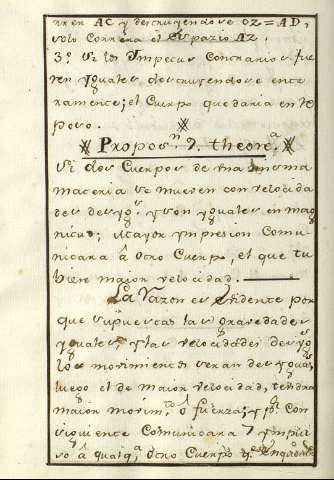 rren AC y destruyendose DZ = AD,
solo Correra el Espazio AZ.
3º. Si los Impetus Contrarios fue
ren yguales destruyendose ente
ramente; el Cuerpo quedaria en Re
poso.
Propos.n 7. theore.a
Si dos Cuerpos de una misma
materia se mueven con velocida
des desyg.s y son yguales en mag
nitud; Mayor ympresion Comu
nicara â otro Cuerpo, el que tu
biere maior velocidad.
La Razon es Evidente por
que supuestas las gravedades
yguales, y las velocidades desyg.s
los movimientos seran desyguas,
luego el de maior velocidad, tendra
maior movim.to ô fuerza; y p.r Con
siguiente Comunicara ympul
so â qualq.a otro Cuerpo q.e